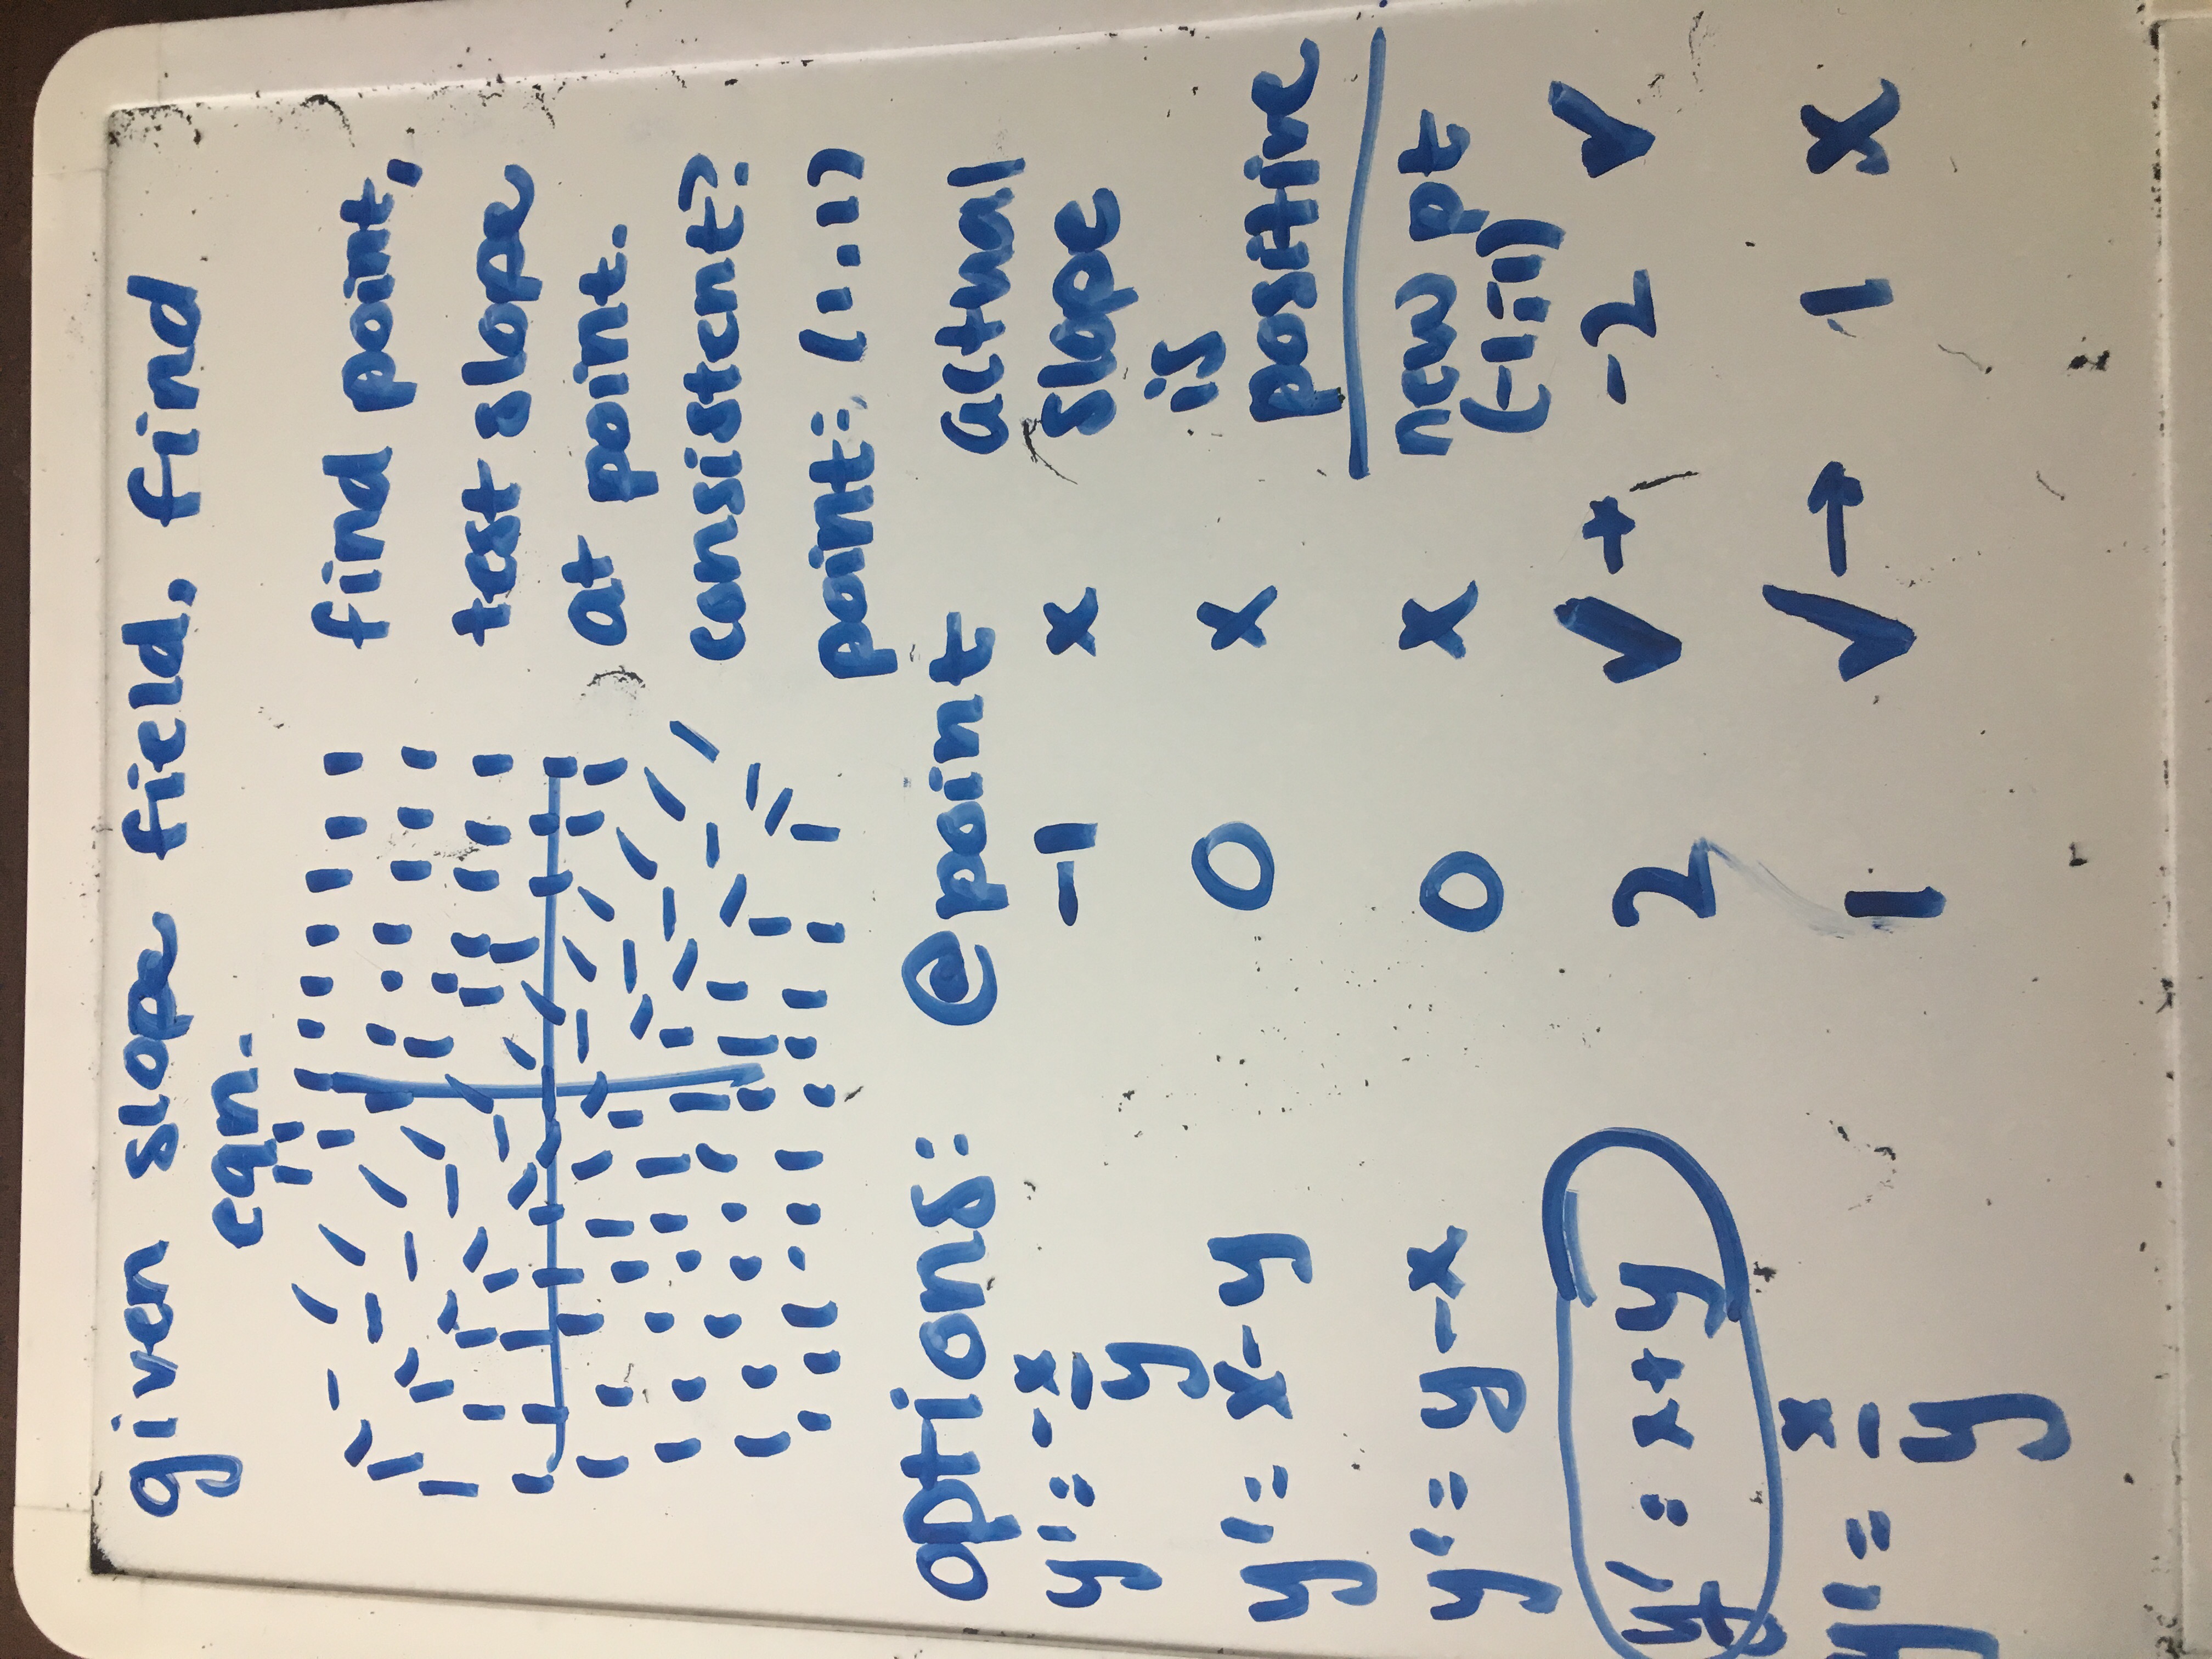 given slope field, find
eqn.
find point,
test slope
at point.
consistent?
point: (1,1)
options: @point actual
slope
is
positive
y' = -x/y -1 x
y' = x-y 0 x
y' = y-x 0 x
new pt
(-1,-1)
y' = x+y 2 ✓ → -2 ✓
y' = x/y 1 ✓ → 1 x